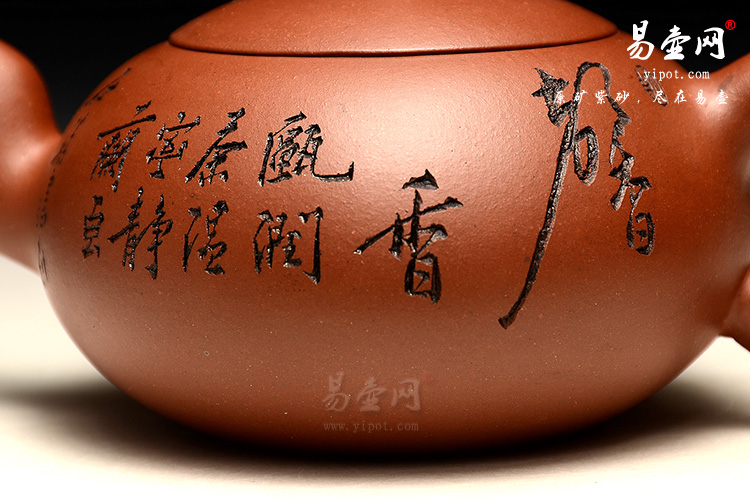 易壶网®
yipot.com
原矿紫砂,尽在易壶
馨
香
甌潤
茶温
宇静
易壶网
www.yipot.com